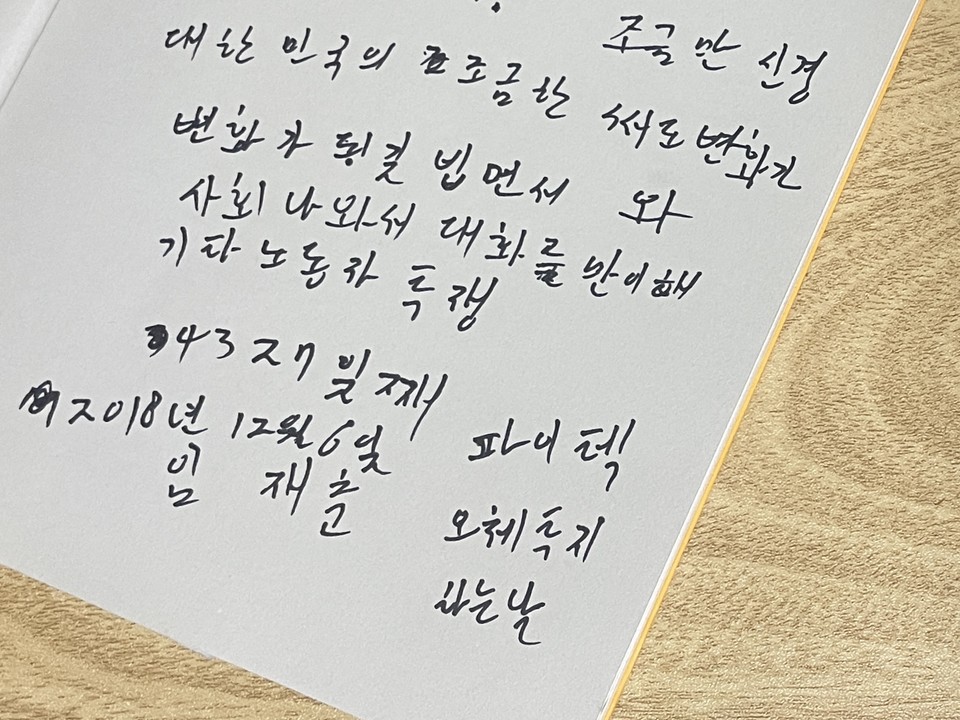 조금만 신경
대한 민국의 조금한 써도 변화가
변화가 되길 빕면서 와
사회 나와서 대화를 많이해
기타 노동자 투쟁
4327일째
2018년 12월 6일 파이텍
임 재춘 오체투지
하는날